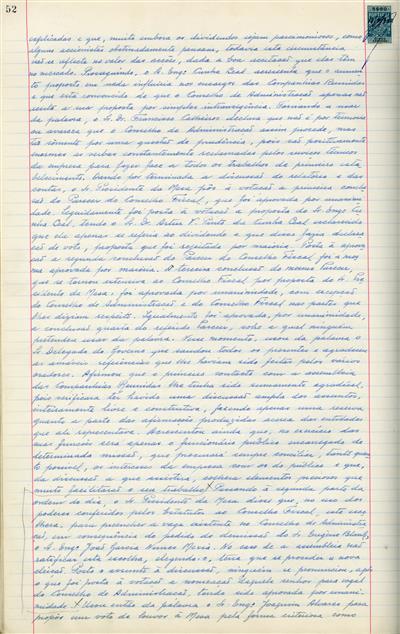 52
explicadas e que, muito embora os dividendos sejam parcimoniosos, como
alguns accionistas obstinadamente pensam, todavia esta circunstância
não se reflecte no valor das acções, dada a boa aceitação que elas têm
no mercado. Prosseguindo, o Sr. Engº Cunha Leal acrescenta que o aumen-
to proposto em nada influiria nos encargos das Companhias Reunidas
e que está convencido de que o Conselho de Administração apenas re-
jeita a sua proposta por simples intransigência. Tornando a usar
da palavra, o Sr. Dr. Francisco Calheiros declara que não é por teimosia
ou avareza que o Conselho de Administração assim procede, mas
tão sòmente por uma questão de prudência, pois são positivamente
enormes as verbas constantemente reclamadas pelos nossos
da empresa para fazer face a todos os trabalhos de primeiro esta-
belecimento. Dando por terminada a discussão do relatório e das
contas, o Sr. Presidente da Mesa pôs à votação a primeira conclu-
são do Parecer do Conselho Fiscal, que foi aprovada por unanimi-
dade. Seguidamente foi posta à votação a proposta do Sr. Engº Cu-
nha Leal, tendo o Sr. Dr. Artur Pinto da Cunha Leal esclarecido
que ela apenas se referia ao dividendo e que disso fazia declara-
ção de voto, proposta que foi rejeitada por maioria. Posta à aprova-
ção a segunda conclusão do Parecer do Conselho Fiscal foi a mes-
ma aprovada por maioria. A terceira conclusão do mesmo Parecer,
que se tornou extensiva ao Conselho Fiscal por proposta do Sr. Pre-
sidente da Mesa, foi aprovada por unanimidade, com excepção
do Conselho de Administração e do Conselho Fiscal nas partes que
lhes diziam respeito. Igualmente foi aprovada, por unanimidade,
a conclusão quarta do referido Parecer, sobre a qual ninguém
pretendeu usar da palavra. Nesse momento, usou da palavra o
Sr. Delegado do Governo que saudou todos os presentes e agradeceu
as amáveis referências que lhe haviam sido feitas pelos vários
oradores. Afirmou que o primeiro contacto com a assembleia
das Companhias Reunidas lhe tinha sido sumamente agradável,
pois verificara ter havido uma discussão ampla dos assuntos,
inteiramente livre e construtiva, fazendo apenas uma reserva
quanto a parte das afirmações produzidas acerca das entidades
que ali representava. Acrescentou ainda que, no exercício das
suas funções será apenas o funcionário público encarregado de
determinada missão, que procurará sempre conciliar, tanto quan-
to possível, os interesses da empresa com os do público e que,
da discussão a que assistira, colhera elementos preciosos que
muito facilitarão o seu trabalho. Passando à segunda parte da
ordem do dia, o Sr. Presidente da Mesa disse que, no uso dos
poderes conferidos pelos Estatutos ao Conselho Fiscal, este esco-
lhera, para preencher a vaga existente no Conselho de Administra-
ção, em consequência do pedido de demissão do Sr. Eugène Blanc,
o Sr. Engº José Garcia Nunes Mexia. No caso de a assembleia não
ratificar esta escolha, segundo a letra que se proceda a nova
eleição. Posto o assunto à discussão, ninguém se pronunciou, após
o que foi posta à votação a nomeação daquele senhor para vogal
do Conselho de Administração, tendo sido aprovada por unani-
midade. Usou então da palavra o Sr. Engº Joaquim Alvares para
propôr um voto de louvor à Mesa pela forma criteriosa como